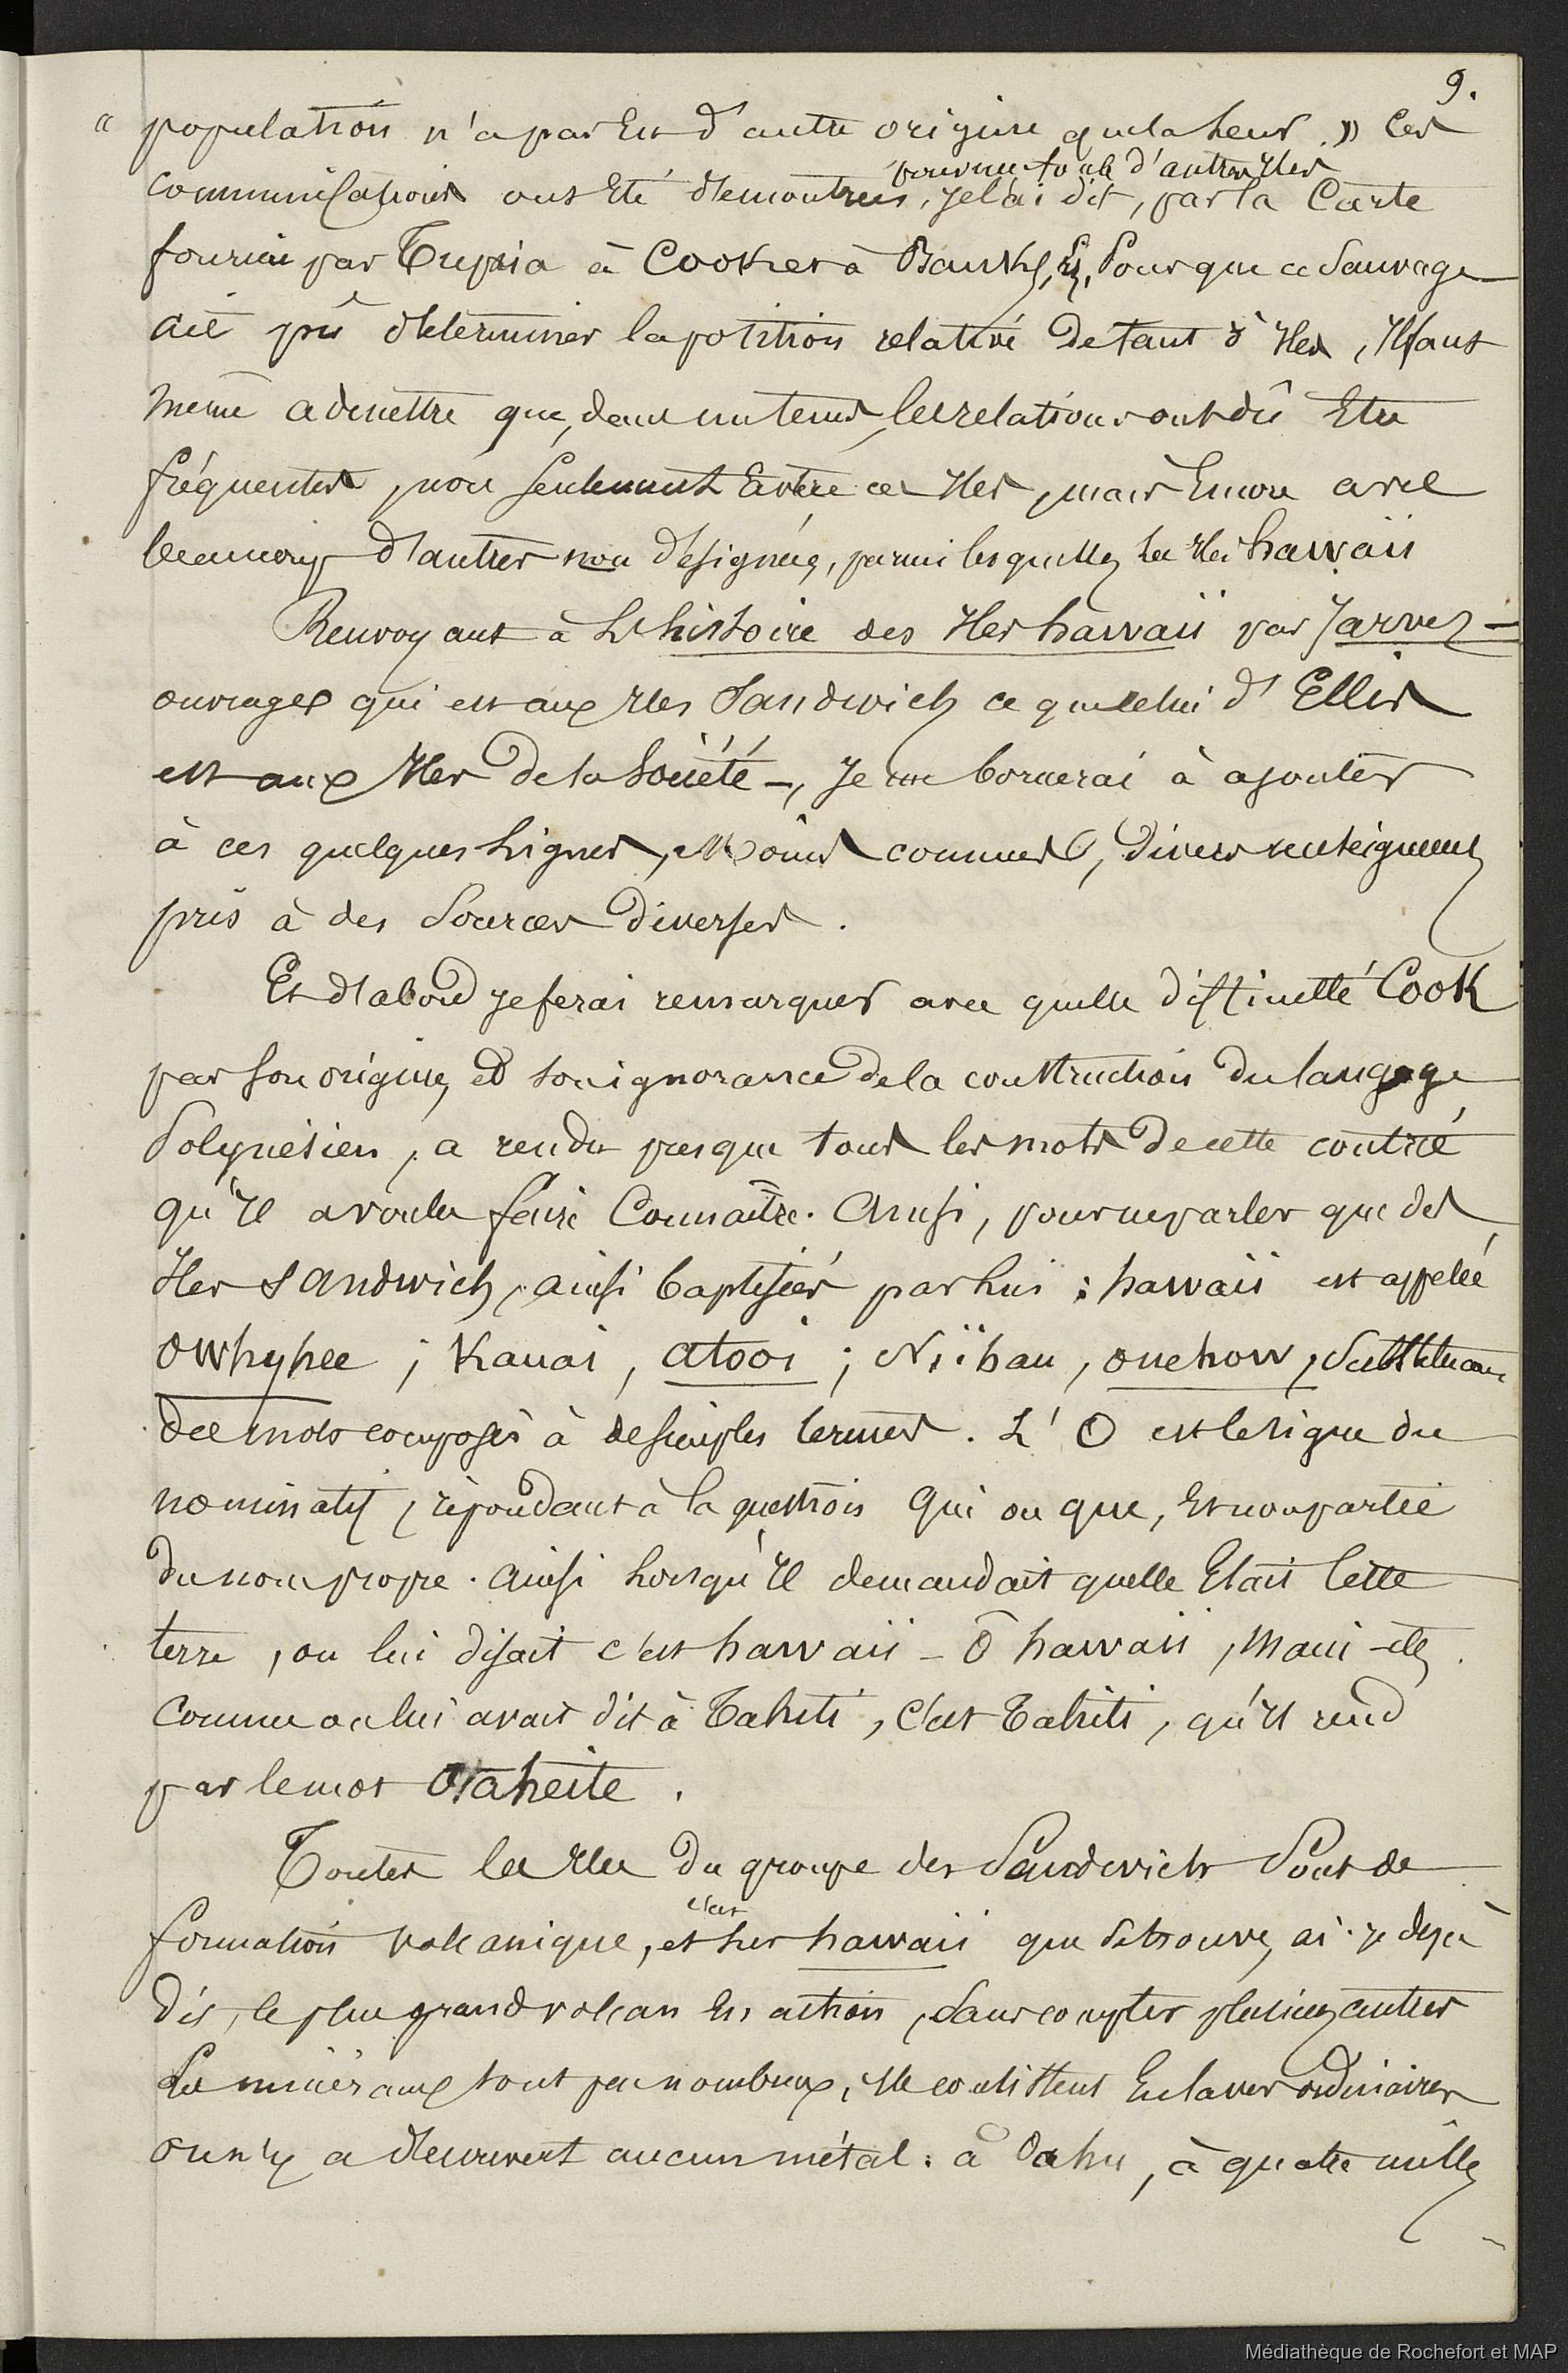 9.
" population n'a pas eu d'autre origine que la leur. » Ces
pour une foule d'autres îles
communications ont été démontrées, je l'ai dit, par la Carte
fournie par Tupaia à Cook et à Banks, Et, Pour que ce Sauvage
ait pû déterminer la position relative de tant d'Iles, Il faut
même admettre que, dans un tems, les relations ont dû Etre
fréquentes, non seulement Entre ces Iles, mais Encore avec
beaucoup d'autres non désignées, parmi lesquelles les Iles hawaii
Renvoyant à L'histoire des Iles hawaii par Jarves -
ouvrage qui est aux Iles Sandwich ce que celui d'Ellis
est aux Iles de la Société -, Je me bornerai à ajouter
à ces quelques Lignes, Moins connues, divers renseignemens
pris à des Sources diverses.
Et d'abord je ferai remarquer avec quelle difficulté Cook
par son origine, et son ignorance de la construction du langage
Polynésien, a rendu presque tous les mots de cette contrée
qu'Il a voulu faire Connaître. Ainsi, pour ne parler que des
Iles Sandwich, ainsi baptisées par lui : hawaii est appelée
Owhyhee ; Kauai, atooi ; Niihau, onehow, Substituant
des mots composés à de simples termes. L'O est le signe du
nominatif, répondant à la question Qui ou que, Et non partie
du nom propre. Ainsi Lorsqu'Il demandait quelle Etait Cette
terre, on lui disait c'est hawaii - O hawaii, Maui - etc.
Comme on lui avait dit à Tahiti, C'est Tahiti, qu'Il rend
par le mot Otaheite.
Toutes les Iles du groupe des Sandwich Sont de
c'est
formation volcanique, et sur hawaii que se trouve, ai-je déjà
dit, le plus grand volcan En action, Sans compter plusieurs autres
Les minéraux sont peu nombreux, Ils consistent En laves ordinaires
on n'y a découvert aucun métal. à Oahu, à quatre milles
Médiathèque de Rochefort et MAP